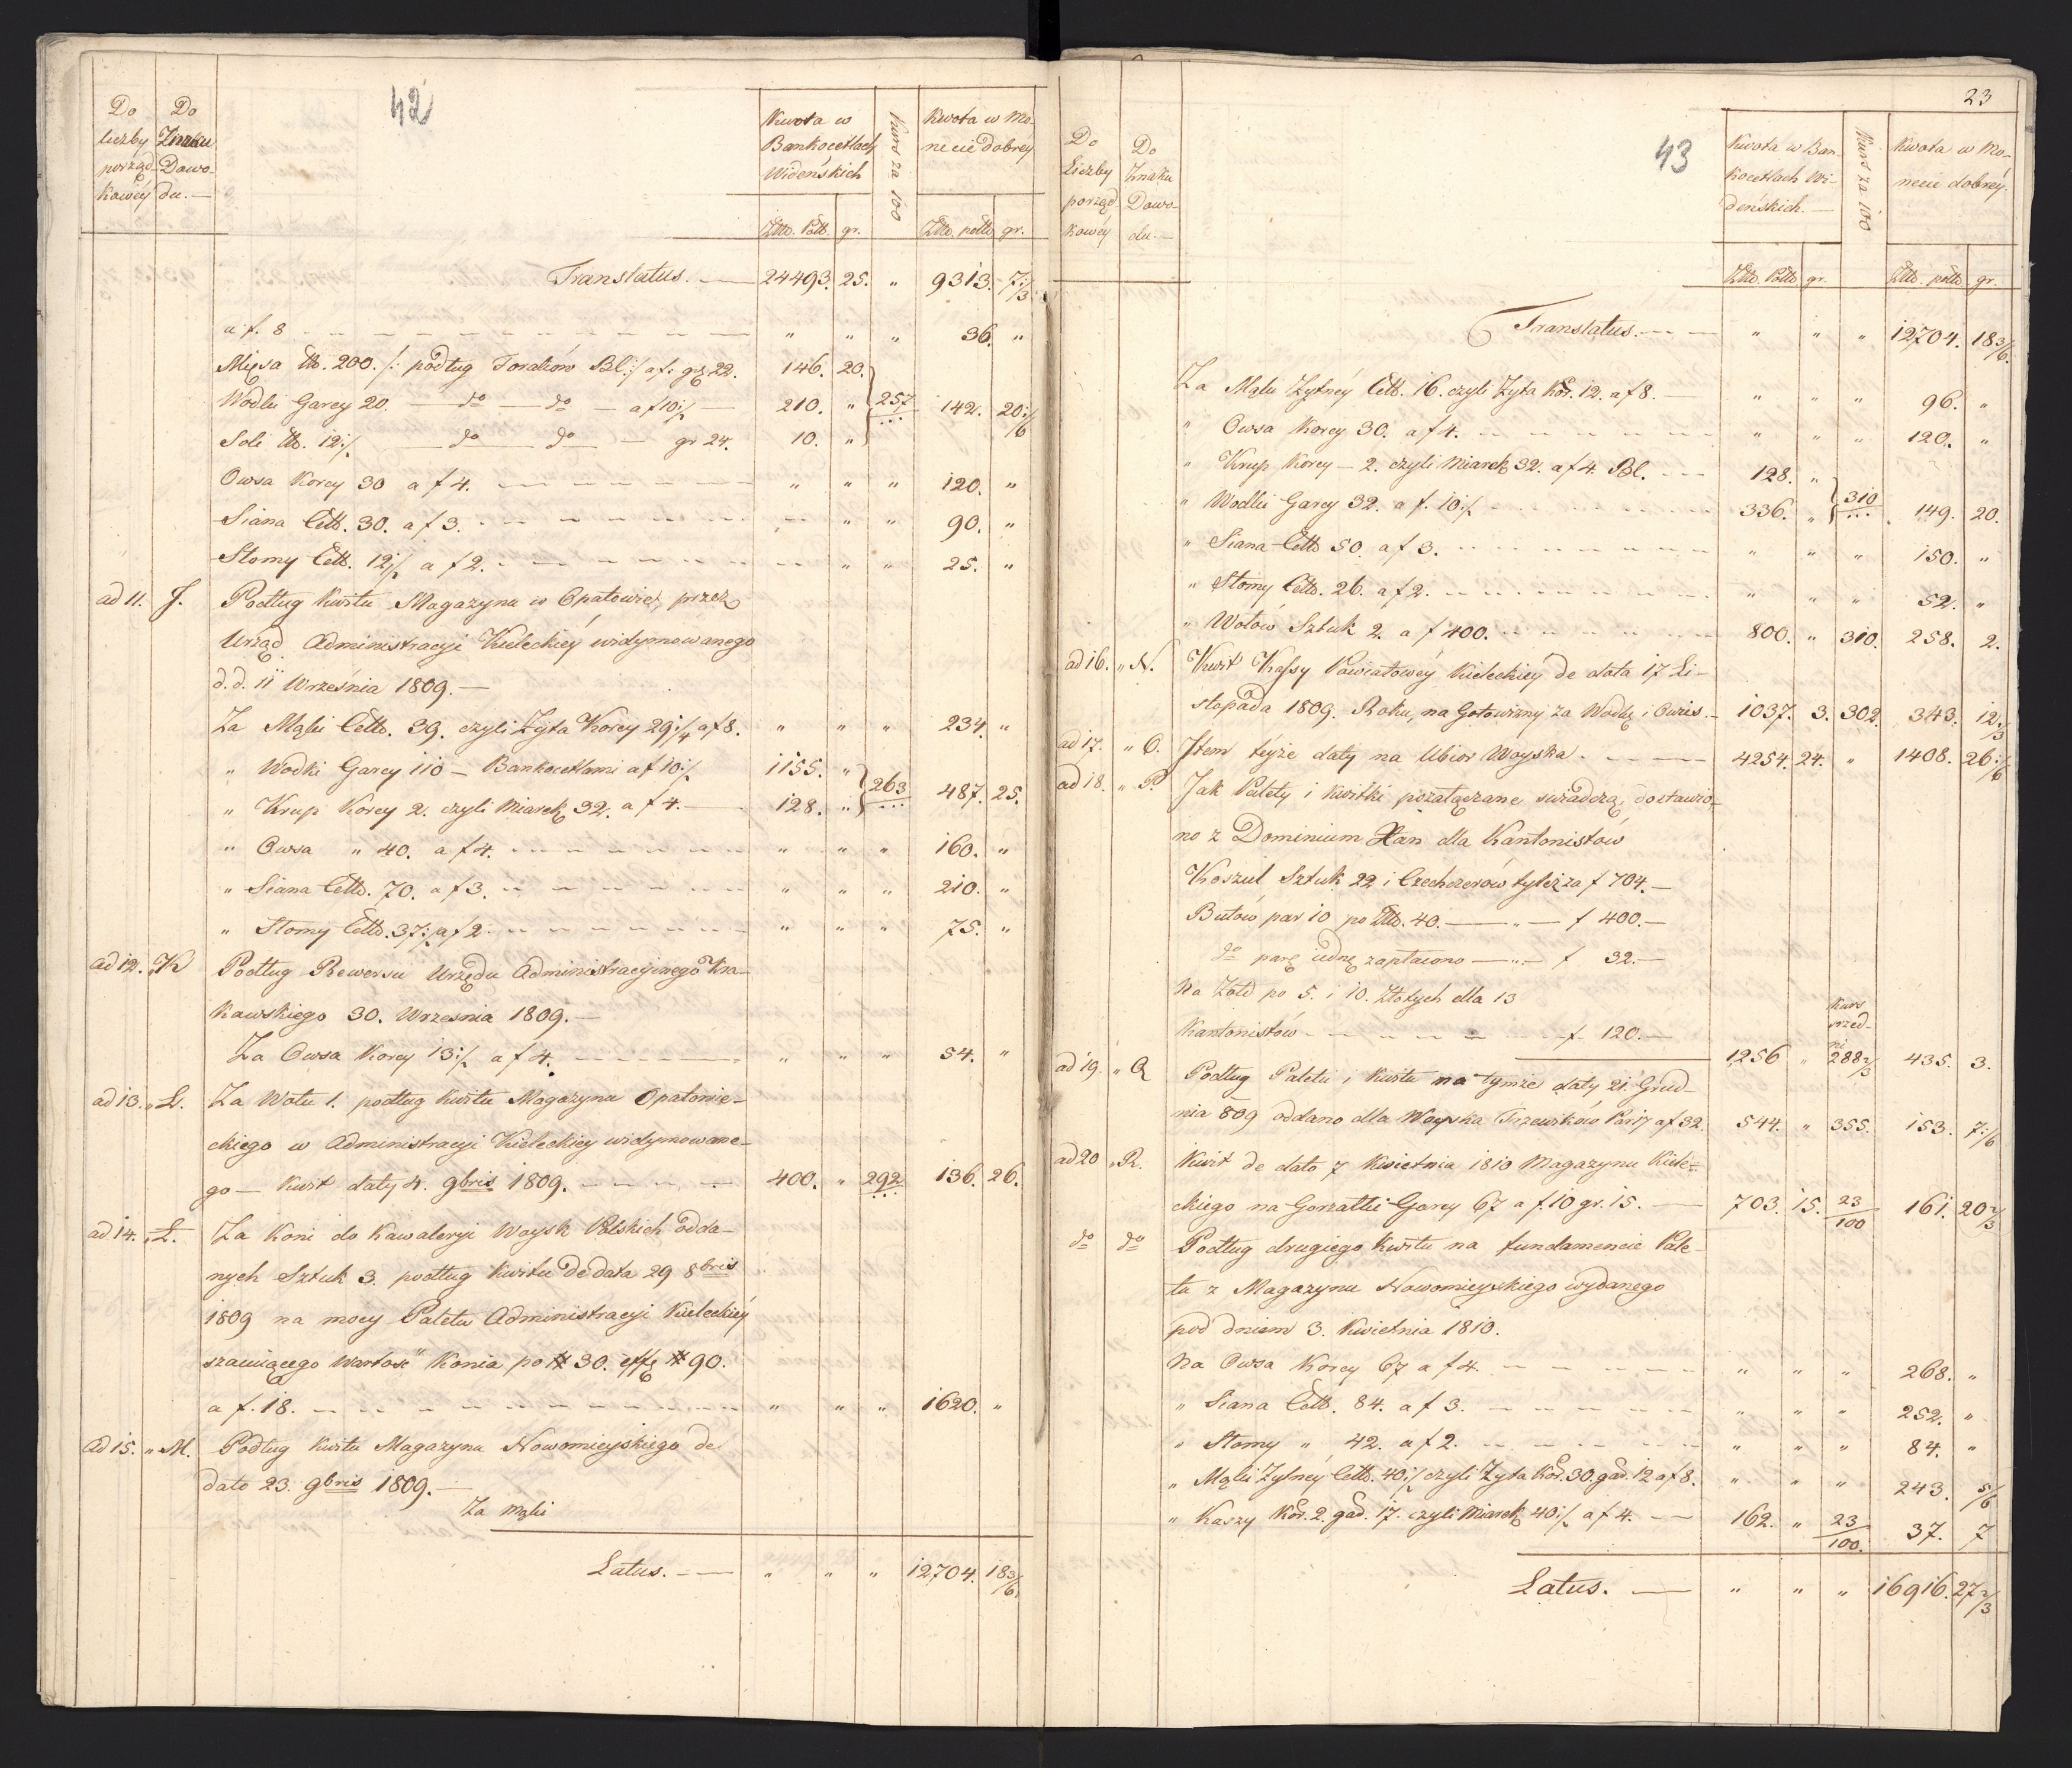 42
Do liczby porządkowey | Do Znaku Dowodu. — | Kwota w Bankocetlach Widenskich Złło. Pols. gr. | Kurs za 100 | Kwota w Monecie dobrey Złło. polło gr.
Translatus. — 24493. 25. " 9313. 7 1/3
a f. 8 — " " " 36. "
Mięsa lb. 200. /: podług Foralów Bl:/ af. gr. 22. 146. 20.
Wodki Garcy 20. — do — do — a f 10 1/2 — 210. " 257 142. 20 1/6
Soli lb. 12 1/2 — do — do — gr 24. 10. "
Owsa Korcy 30 a f 4. " " " 120. "
Siana Cett. 30. a f 3. " " 90. "
Słomy Cett. 12 1/2 a f 2. " " 25. "
ad 11. J. Podług kwitu Magazynu w Opatowie, przez
Urząd Administracyi Kieleckiey widymowanego
d.d. 11 Września 1809. —
Za Mąki Cetto. 39. czyli Żyta Korcy 29 1/4 a f 8. " " " 234. "
" Wodki Garcy 110 — Bankocetlami a f 10 1/2 1155. " 263 487. 25.
" Krup Korcy 2. czyli Miarek 32. a f 4. — 128. "
" Owsa " 40. a f 4. " " " 160. "
" Siana Cetto. 70. a f 3. " " " 210. "
" Słomy Cetto. 37 1/2 a f 2. " " " 75. "
ad 12. K Podług Rewersu Urzędu Administracyinego Kra-
kowskiego 30. Wrzesnia 1809. —
Za Owsa Korcy 13 1/2 a f 4. " " " 54. "
ad 13. " L. Za Wołu 1. podług kwitu Magazynu Opatowie-
ckiego w Administracyi Kieleckiey widymowane-
go — kwit daty 4. 9bris 1809. 400. " 292 136. 26.
ad 14. " Ł. Za Koni do Kawaleryi Woysk Polskich odda-
nych Sztuk 3. podług kwitu de data 29 8bris
1809 na mocy Paletu Administracyi Kieleckiey
szacuiącego Wartość Konia po # 30. effę # 90.
a f. 18. " " " 1620. "
ad 15. " M. Podług kwitu Magazynu Nowomieyskiego de
dato 23. 9bris 1809. —
Za mąki
Latus. — " " " 12704. 18 3/6
23
43
Do Liczby porządkowey | Do Znaku Dowodu. — | Kwota w Bankocetlach Widenskich. — Złło. Polło gr. | Kurs za 100 | Kwota w Monecie dobrey. Złło. polło gr.
Translatus. — " " " 12704. 18 3/6.
Za Mąki Żytney Cett. 16. czyli Żyta Kor. 12. a f 8. — " " " 96. "
" Owsa Korcy 30. a f 4. " " " 120. "
" Krup Korcy — 2. czyli Miarek 32. a f 4. Bl. — 128. "
" Wodki Garcy 32. a f. 10 1/2 336. " 310 149. 20.
" Siana Cetto 50. a f 3. " " " 150. "
" Słomy Cetto. 26. a f 2. " " " 52. "
" Wołów Sztuk 2. a f 400. 800. " 310. 258. 2.
ad 16. " N. Kwit Kassy Powiatowey Kieleckiey de data 17 Li-
stopada 1809. Roku, na Gotowizny za Wodkę i Owis. — 1037. 3. 302. 343. 12 2/3
ad 17. " O. Item teyże daty na Ubior Woyska. — 4254. 24. " 1408. 26 1/6
ad 18. " P. Jak Palety i kwitki pozałączane swiadczą, dostawio-
no z Dominium Xan dla Kantonistów
Koszul Sztuk 22 i Czechczerów tyleż za f 704. —
Butów par 10 po Złło. 40. — " — f 400. —
do parę iedną zapłacono — " — f 32. —
Na Żołd po 5. i 10. Złotych dla 13
Kantonistów — f. 120. —
1256 " Kurs srzedni 288 2/3 435. 3.
ad 19. " Q Podług Paletu i kwitu na tymże daty 21. Grud-
nia 809 oddano dla Woyska Trzewików Par 17 a f 32. 544. " 355. 153. 7 1/6
ad 20 " R. Kwit de dato 7 Kwietnia 1810 Magazynu Kiele-
ckiego na Gorzałki Garcy 67 a f. 10 gr. 15. — 703. 15. 23/100 161. 20 2/3
do do Podług drugiego kwitu na fundamencie Pale-
tu z Magazynu Nowomieyskiego wydanego
pod dniem 3. Kwietnia 1810.
Na Owsa Korcy 67 a f 4. " " " 268. "
" Siana Cett. 84. a f 3. " " " 252. "
" Słomy " 42. a f 2. " " " 84. "
" Mąki Żytney Cetto. 40 1/2 czyli Żyta Kor. 30. gar. 12 a f 8. " " " 243. 5/6
" Kaszy Kor. 2. gar. 17. czyli Miarek 40 1/2 a f 4. — 162. " 23/100. 37. 7
Latus. — " " " 16916. 27 2/3